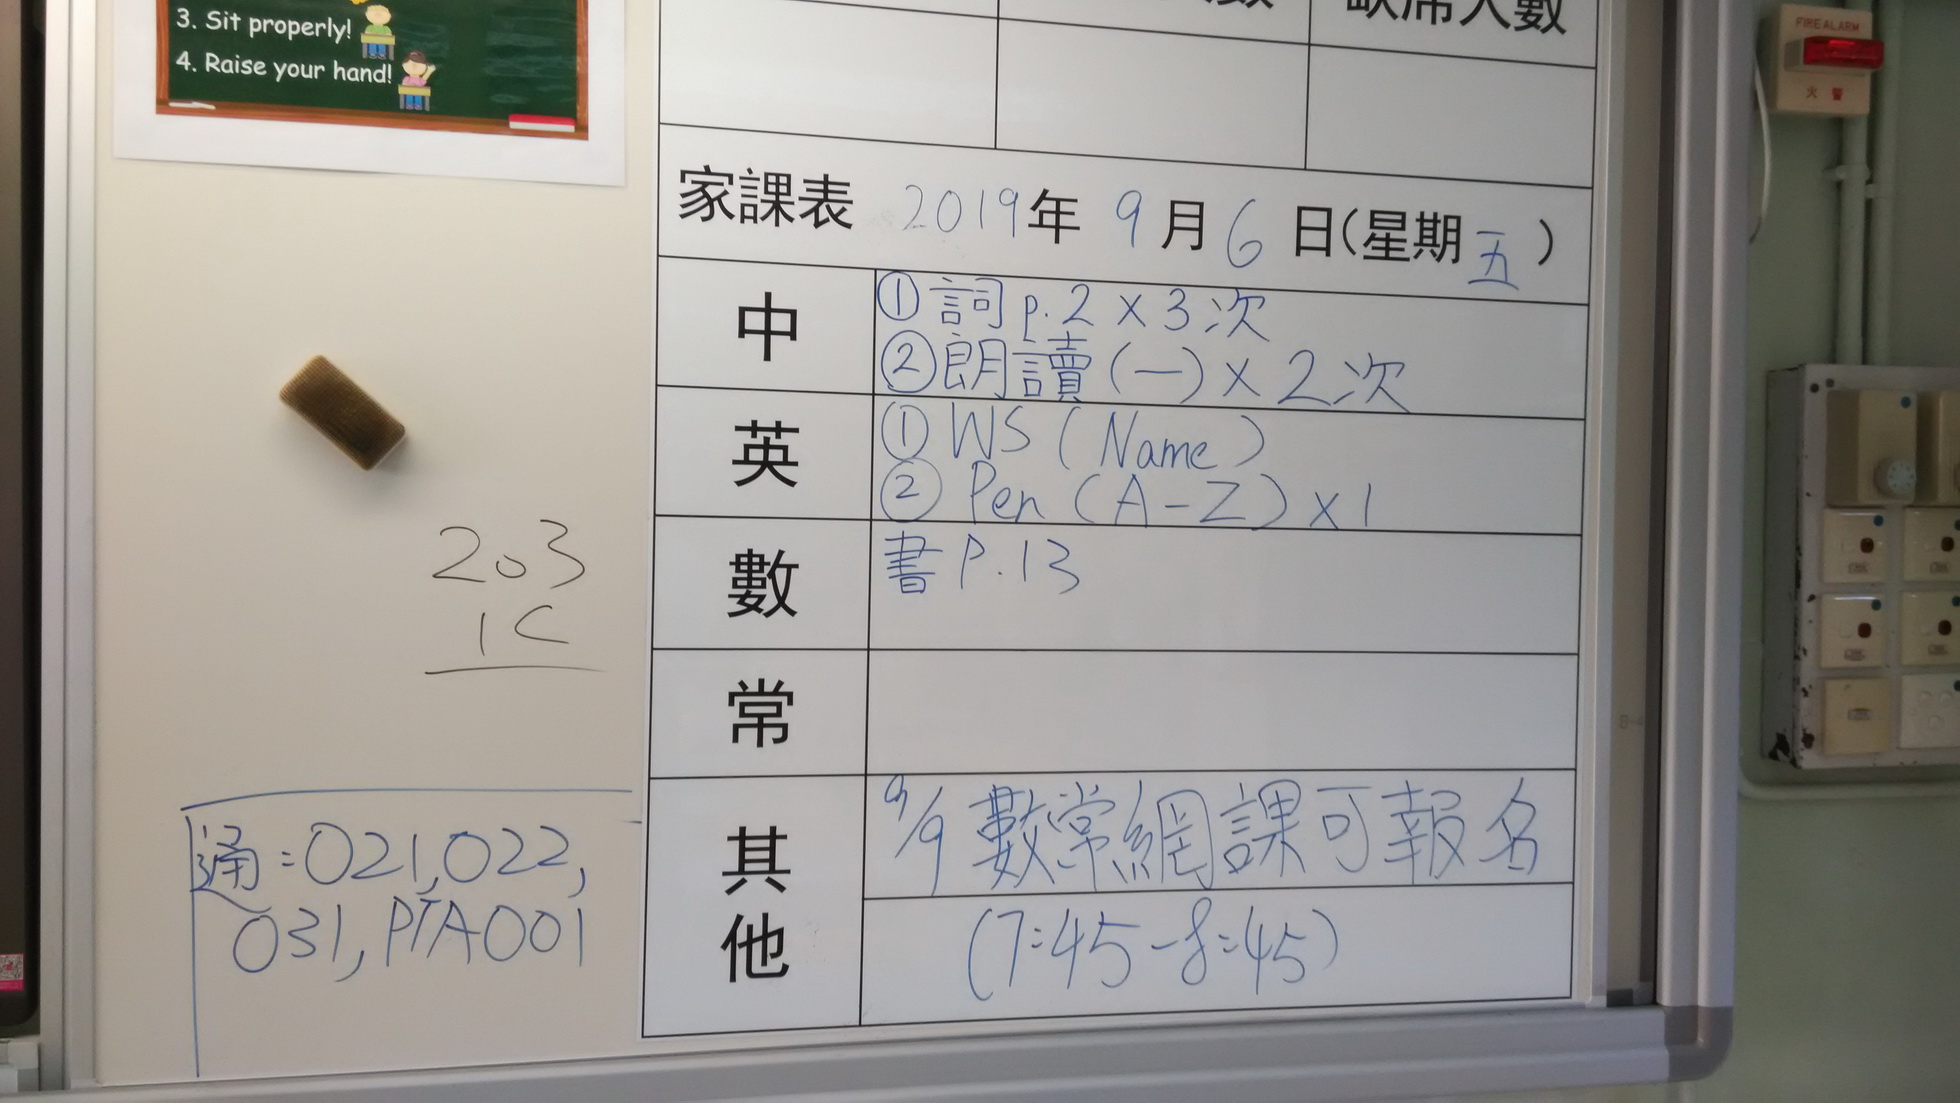 3. Sit properly!
4. Raise your hand!
缺席人數
FIRE ALARM
火警
家課表 2019年 9月6日(星期五)
中
①詞p.2×3次
②朗讀(一)×2次
英
① WS (Name)
② Pen (A-Z)×1
數
書P.13
常
其他
9/9 數常網課可報名
(7:45-8:45)
203
1C
通:021,022,
031,PTA001